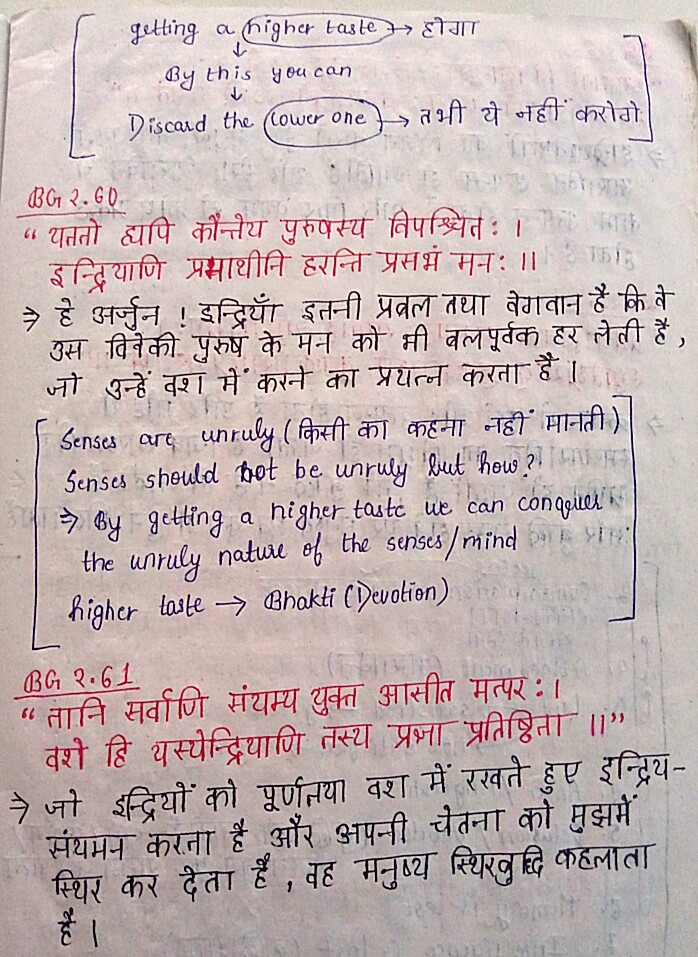 getting a higher taste → होगा
↓
By this you can
↓
Discard the lower one → तभी ये नहीं करोगे
BG 2.60
“ यततो ह्यपि कौन्तेय पुरुषस्य विपश्चितः ।
इन्द्रियाणि प्रमाथीनि हरन्ति प्रसभं मनः ॥
⇒ हे अर्जुन ! इन्द्रियाँ इतनी प्रबल तथा वेगवान है कि वे
उस विवेकी पुरुष के मन को भी बलपूर्वक हर लेती है,
जो उन्हें वश में करने का प्रयत्न करता है ।
Senses are unruly (किसी का कहना नहीं मानती)
Senses should not be unruly but how?
⇒ By getting a higher taste we can conquer
the unruly nature of the senses/mind
higher taste → Bhakti (Devotion)
BG 2.61
“ तानि सर्वाणि संयम्य युक्त आसीत मत्परः ।
वशे हि यस्येन्द्रियाणि तस्य प्रज्ञा प्रतिष्ठिता ॥”
⇒ जो इन्द्रियों को पूर्णतया वश में रखते हुए इन्द्रिय-
संयमन करता है और अपनी चेतना को मुझमें
स्थिर कर देता है, वह मनुष्य स्थिरबुद्धि कहलाता
है ।